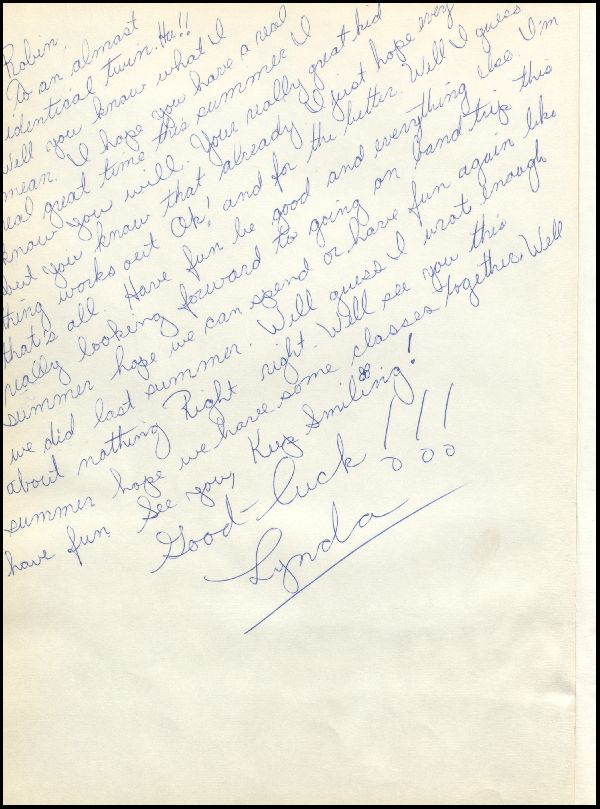 Robin,
To an almost
identical twin. Ha!!
Well you know what I
mean. I hope you have a real
real great time this summer I
know you will. Your really great kid
but you know that already I just hope every
thing works out Ok! and for the better. Well I guess
that's all. Have fun be good and everything else I'm
really looking forward to going on band trip this
summer hope we can spend or have fun again like
we did last summer. Well guess I wrot enough
about nothing Right right. Well see you this
summer hope we have some classes together. Well
have fun. See you, Keep Smiling!
Good-luck!!!
Lynda